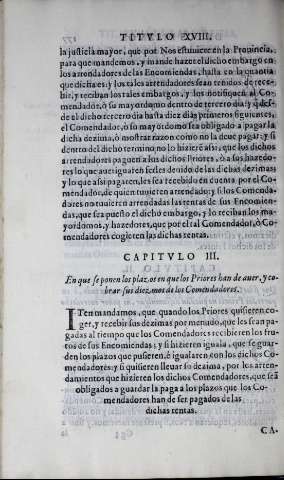 TITVLO XVIII.
la justicia mayor, que por Nos estuuiere en la Prouincia,
para que mandemos, y mande hazer el dicho embargo en
los arrendadores de las Encomiendas, hasta en la quantia
que dicha es: y los tales arrendadores sean tenidos de rece-
bir, y reciban los tales embargos, y los notifiquen al Co-
mendador, ò su mayordomo dentro de tercero dia: y desde
el dicho tercero dia hasta diez dias primeros siguientes,
el Comendador, ò su mayordomo sea obligado a pagar la
dicha dezima, ò mostrar razon como no la deue pagar: y si
dentro del dicho termino no lo hiziere assi, que los dichos
arrendadores paguen a los dichos Priores, ò a sus hazedo-
res lo que aueriguaren seles deuido de las dichas dezimas:
y lo que assi pagaren, les sea recebido en cuenta por el Co-
mendador, de quien tuuieren arrendado; y si los Comenda-
dores no tuuieren arrendadas las rentas de sus Encomien-
das, que sea puesto el dicho embargo, y lo reciban los ma-
yordomos, y hazedores, que por el tal Comendador, ò Co-
mendadores cogieren las dichas rentas.
CAPITVLO III.
En que se ponen los plazos en que los Priores han de auer, y co-
brar sus diezmos de los Comendadores.
ITen mandamos, que quando los Priores quisieren co-
ger, y recebir sus dezimas por menudo, que les sean pa-
gadas al tiempo que los Comendadores recibieren los fru-
tos de sus Encomiendas; y si hizieren iguala, que se guar-
den los plazos que pusieren, è igualaren con los dichos Co-
mendadores: y si quisieren lleuar su dezima, por los arren-
damientos que hizieren los dichos Comendadores, que seã
obligados a guardar la paga a los plazos que los Co-
mendadores han de ser pagados de las
dichas rentas.
CA-